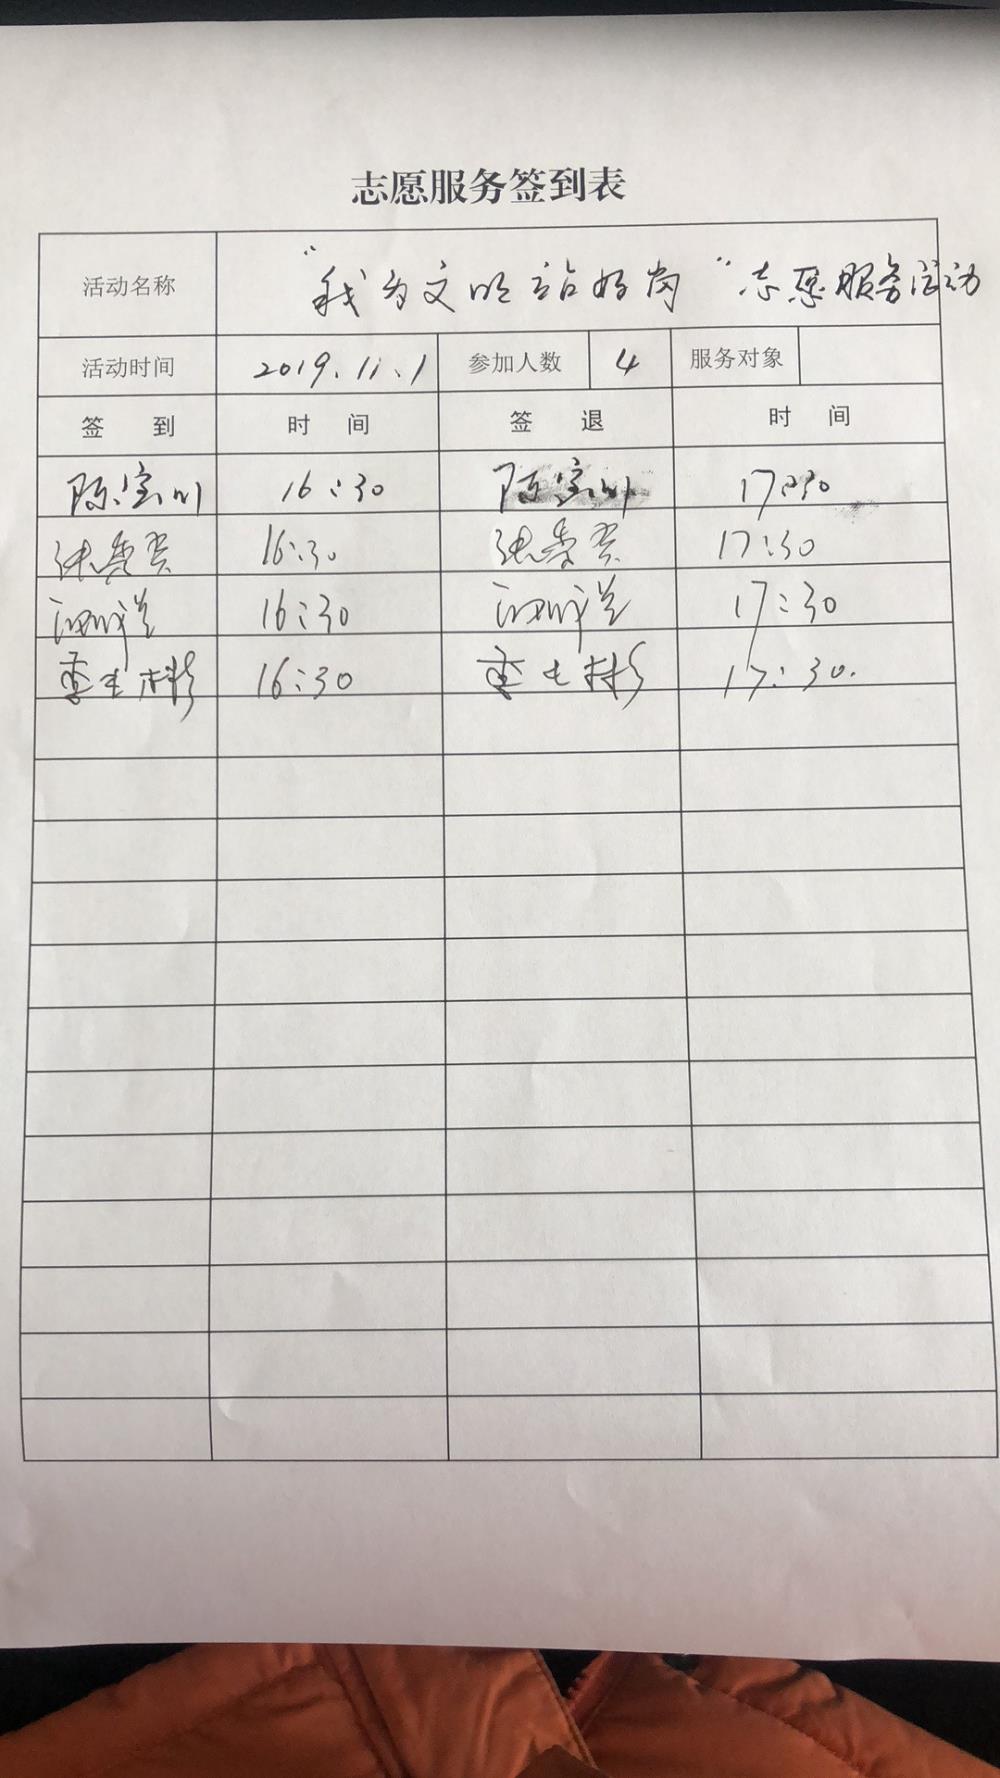 志愿服务签到表
活动名称 "我为文明站好岗"志愿服务活动
活动时间 2019.11.1 参加人数 4 服务对象
签 到 时 间 签 退 时 间
陈宝川 16:30 陈宝川 17:30
张贵 16:30 张贵 17:30
16:30 17:30
16:30 17:30.